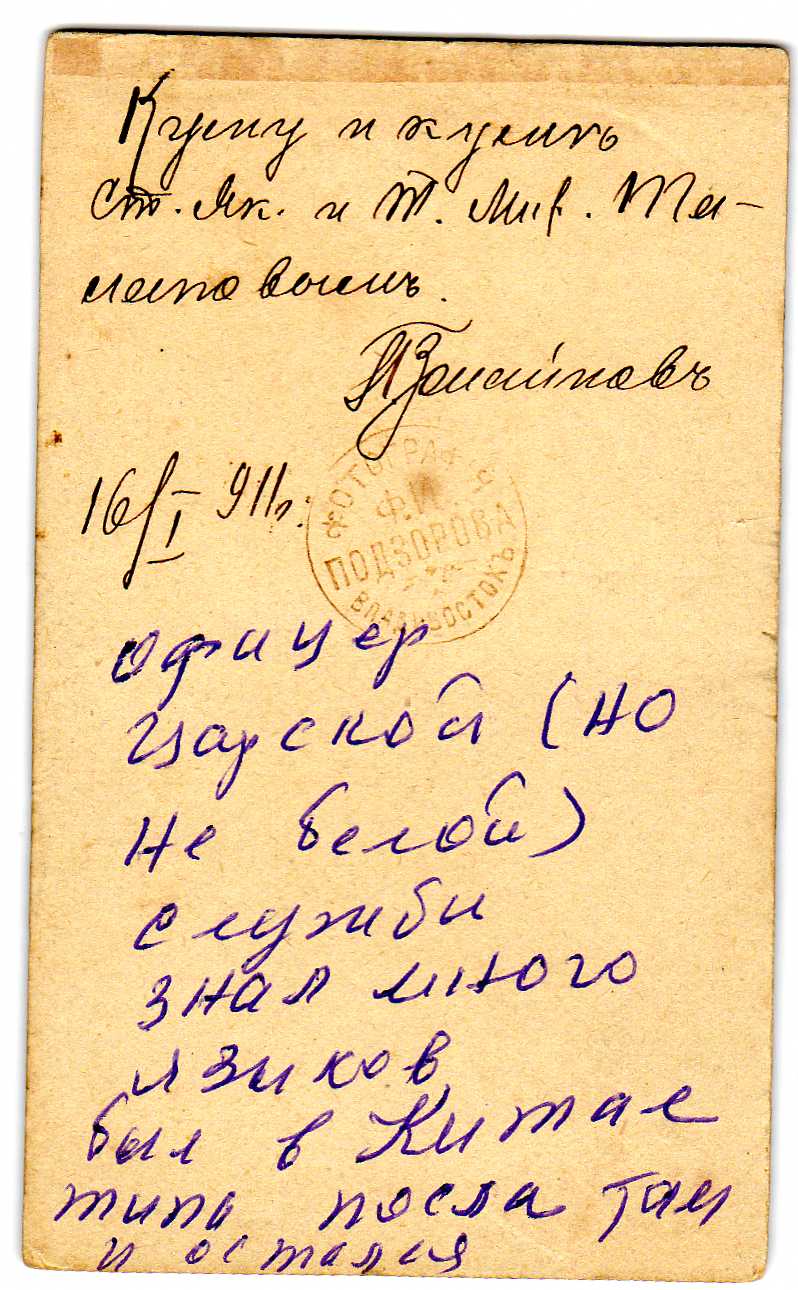 Куму и кумѣ
Ст. Як. и Т. Мир. Та-
лановымъ.
16/I 911г.
ФОТОГРАФІЯ
Ф.И.
ПОДЗОРОВА
ВЛАДИВОСТОКЪ
офицер
царской (но
не белой)
служби
знал много
язиков
был в Китае
типа посла там
и остался